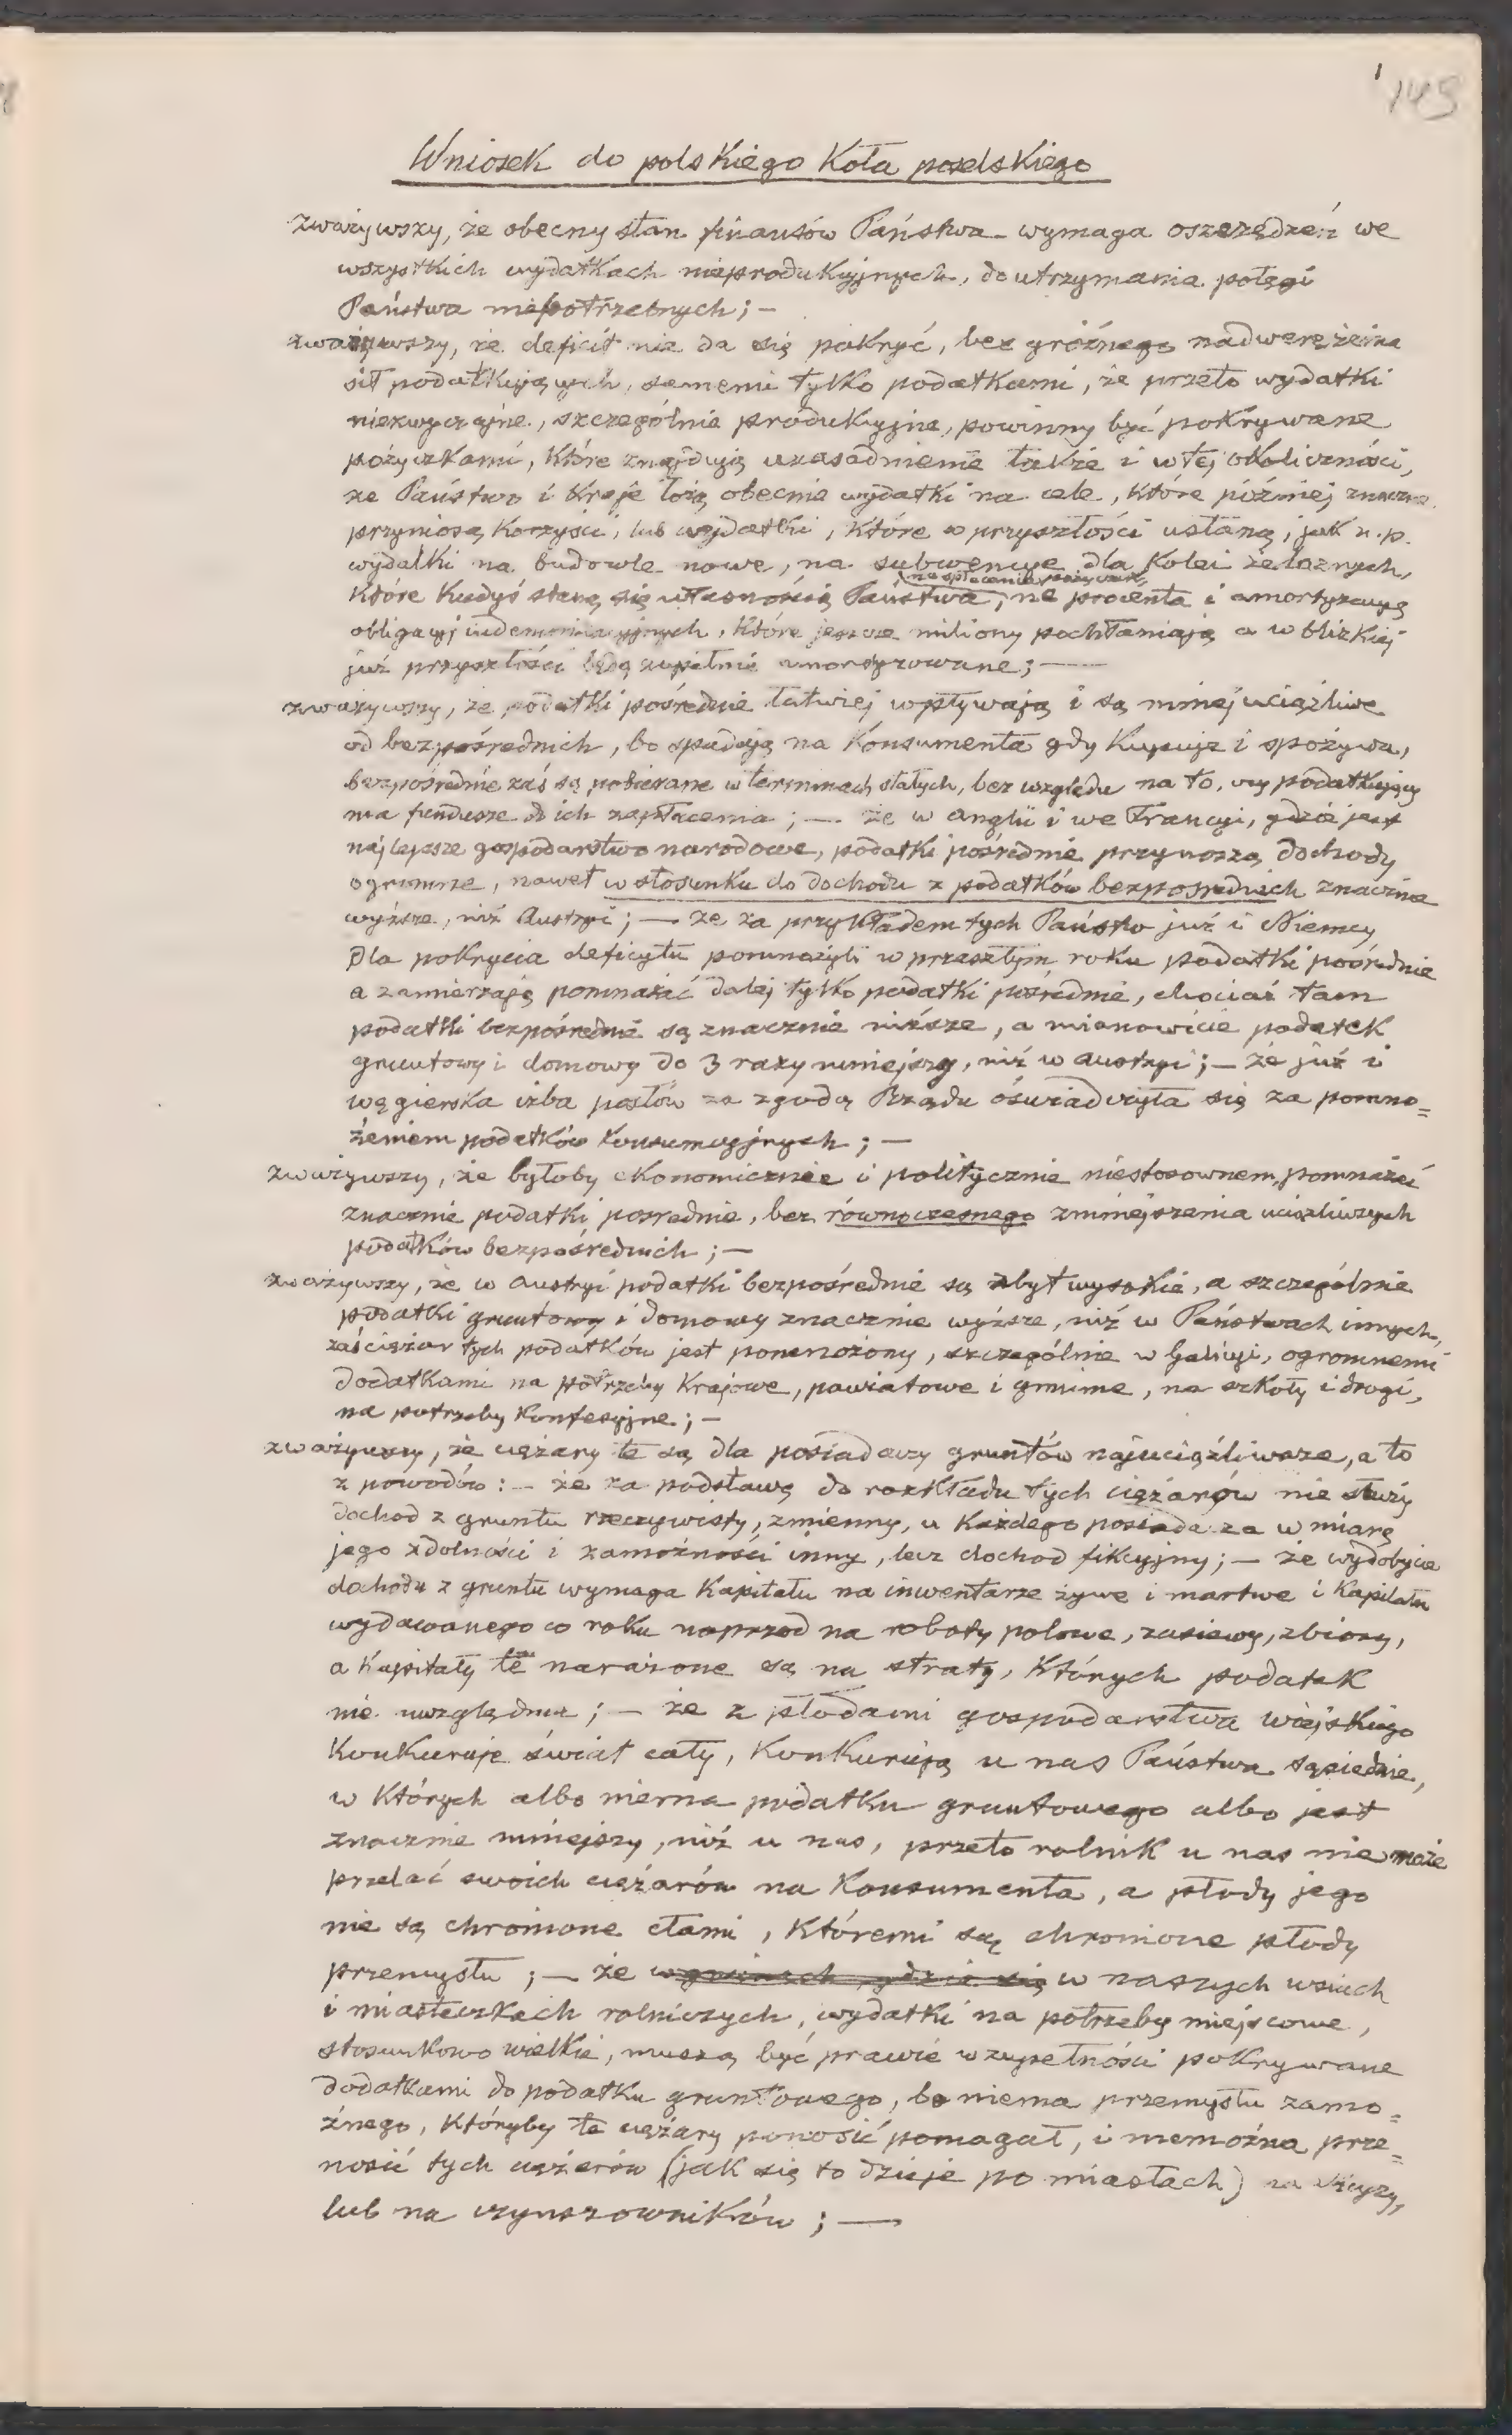 149
Wniosek do polskiego Koła poselskiego
zważywszy, że obecny stan finansów Państwa wymaga oszczędzeń we
wszystkich wydatkach nieprodukcyjnych, do utrzymania potęgi
Państwa niepotrzebnych; —
zważywszy, że deficit nie da się pokryć, bez groźnego nadwerężenia
sił podatkujących, samemi tylko podatkami, że przeto wydatki
niezwyczajne, szczególnie produkcyjne, powinny być pokrywane
pożyczkami, które znajdują uzasadnienie także i w tej okoliczności,
że Państwo i Kraje łożą obecnie wydatki na cele, które później znaczne
przyniosą korzyści, lub wydatki, które w przyszłości ustaną, jak n.p.
wydatki na budowle nowe, na subwencye dla Kolei żelaznych,
na spłacenie pożyczek,
które kiedyś staną się własnością Państwa, na procenta i amortyzacyą
obligacyj indemnizacyjnych, które jeszcze miliony pochłaniają a w blizkiej
już przyszłości będą zupełnie amortyzowane; —
zważywszy, że podatki pośrednie łatwiej wpływają i są mniej uciążliwe
od bezpośrednich, bo spadają na Konsumenta gdy kupuje i spożywa,
bezpośrednie zaś są pobierane w terminach stałych, bez względu na to, czy podatkujący
ma fundusze do ich zapłacenia; — że w Anglii i we Francyi, gdzie jest
najlepsze gospodarstwo narodowe, podatki pośrednie przynoszą dochody
ogromne, nawet w stosunku do dochodu z podatków bezpośrednich znacznie
wyższe, niż Austryi; — że za przykładem tych Państw już i Niemcy
dla pokrycia deficytu pomnożyli w przeszłym roku podatki pośrednie
a zamierzają pomnażać dalej tylko podatki pośrednie, chociaż tam
podatki bezpośrednie są znacznie niższe, a mianowicie podatek
gruntowy i domowy do 3 razy mniejszy, niż w Austryi; — że już i
węgierska izba posłów za zgodą Rządu oświadczyła się za pomno=
żeniem podatków konsumcyjnych; —
zważywszy, że byłoby ekonomicznie i politycznie niestosownem, pomnażać
znacznie podatki pośrednie, bez równoczesnego zmniejszenia uciążliwszych
podatków bezpośrednich; —
zważywszy, że w Austryi podatki bezpośrednie są zbyt wysokie, a szczególnie
podatki gruntowy i domowy znacznie wyższe, niż w Państwach innych,
zaś ciężar tych podatków jest pomnożony, szczególnie w Galicyi, ogromnemi
dodatkami na potrzeby Krajowe, powiatowe i gminne, na szkoły i drogi,
na potrzeby Konfesyjne; —
zważywszy, że ciężary te są dla posiadaczy gruntów najuciążliwsze, a to
z powodów: — że za podstawę do rozkładu tych ciężarów nie służy
dochod z gruntu rzeczywisty, zmienny, u każdego posiadacza w miarę
jego zdolności i zamożności inny, lecz dochod fikcyjny; — że wydobycie
dochodu z gruntu wymaga Kapitału na inwentarze żywe i martwe i Kapitału
wydawanego co roku naprzod na roboty polowe, zasiewy, zbiory,
a Kapitały te narażone są na straty, których podatek
nie uwzględnia; — że z płodami gospodarstwa wiejskiego
Konkuruje świat cały, Konkurują u nas Państwa sąsiednie,
w których albo niema podatku gruntowego albo jest
znacznie mniejszy, niż u nas, przeto rolnik u nas nie może
przelać swoich ciężarów na Konsumenta, a płody jego
nie są chronione cłami, któremi są chronione płody
przemysłu; — że w gminach gdzie się w naszych wsiach
i miasteczkach rolniczych, wydatki na potrzeby miejscowe,
stosunkowo wielkie, muszą być prawie w zupełności pokrywane
dodatkami do podatku gruntowego, bo niema przemysłu zamo=
żnego, któryby te ciężary ponosić pomagał, i niemożna prze=
nosić tych ciężarów (jak się to dzieje po miastach) na
lub na czynszowników; —